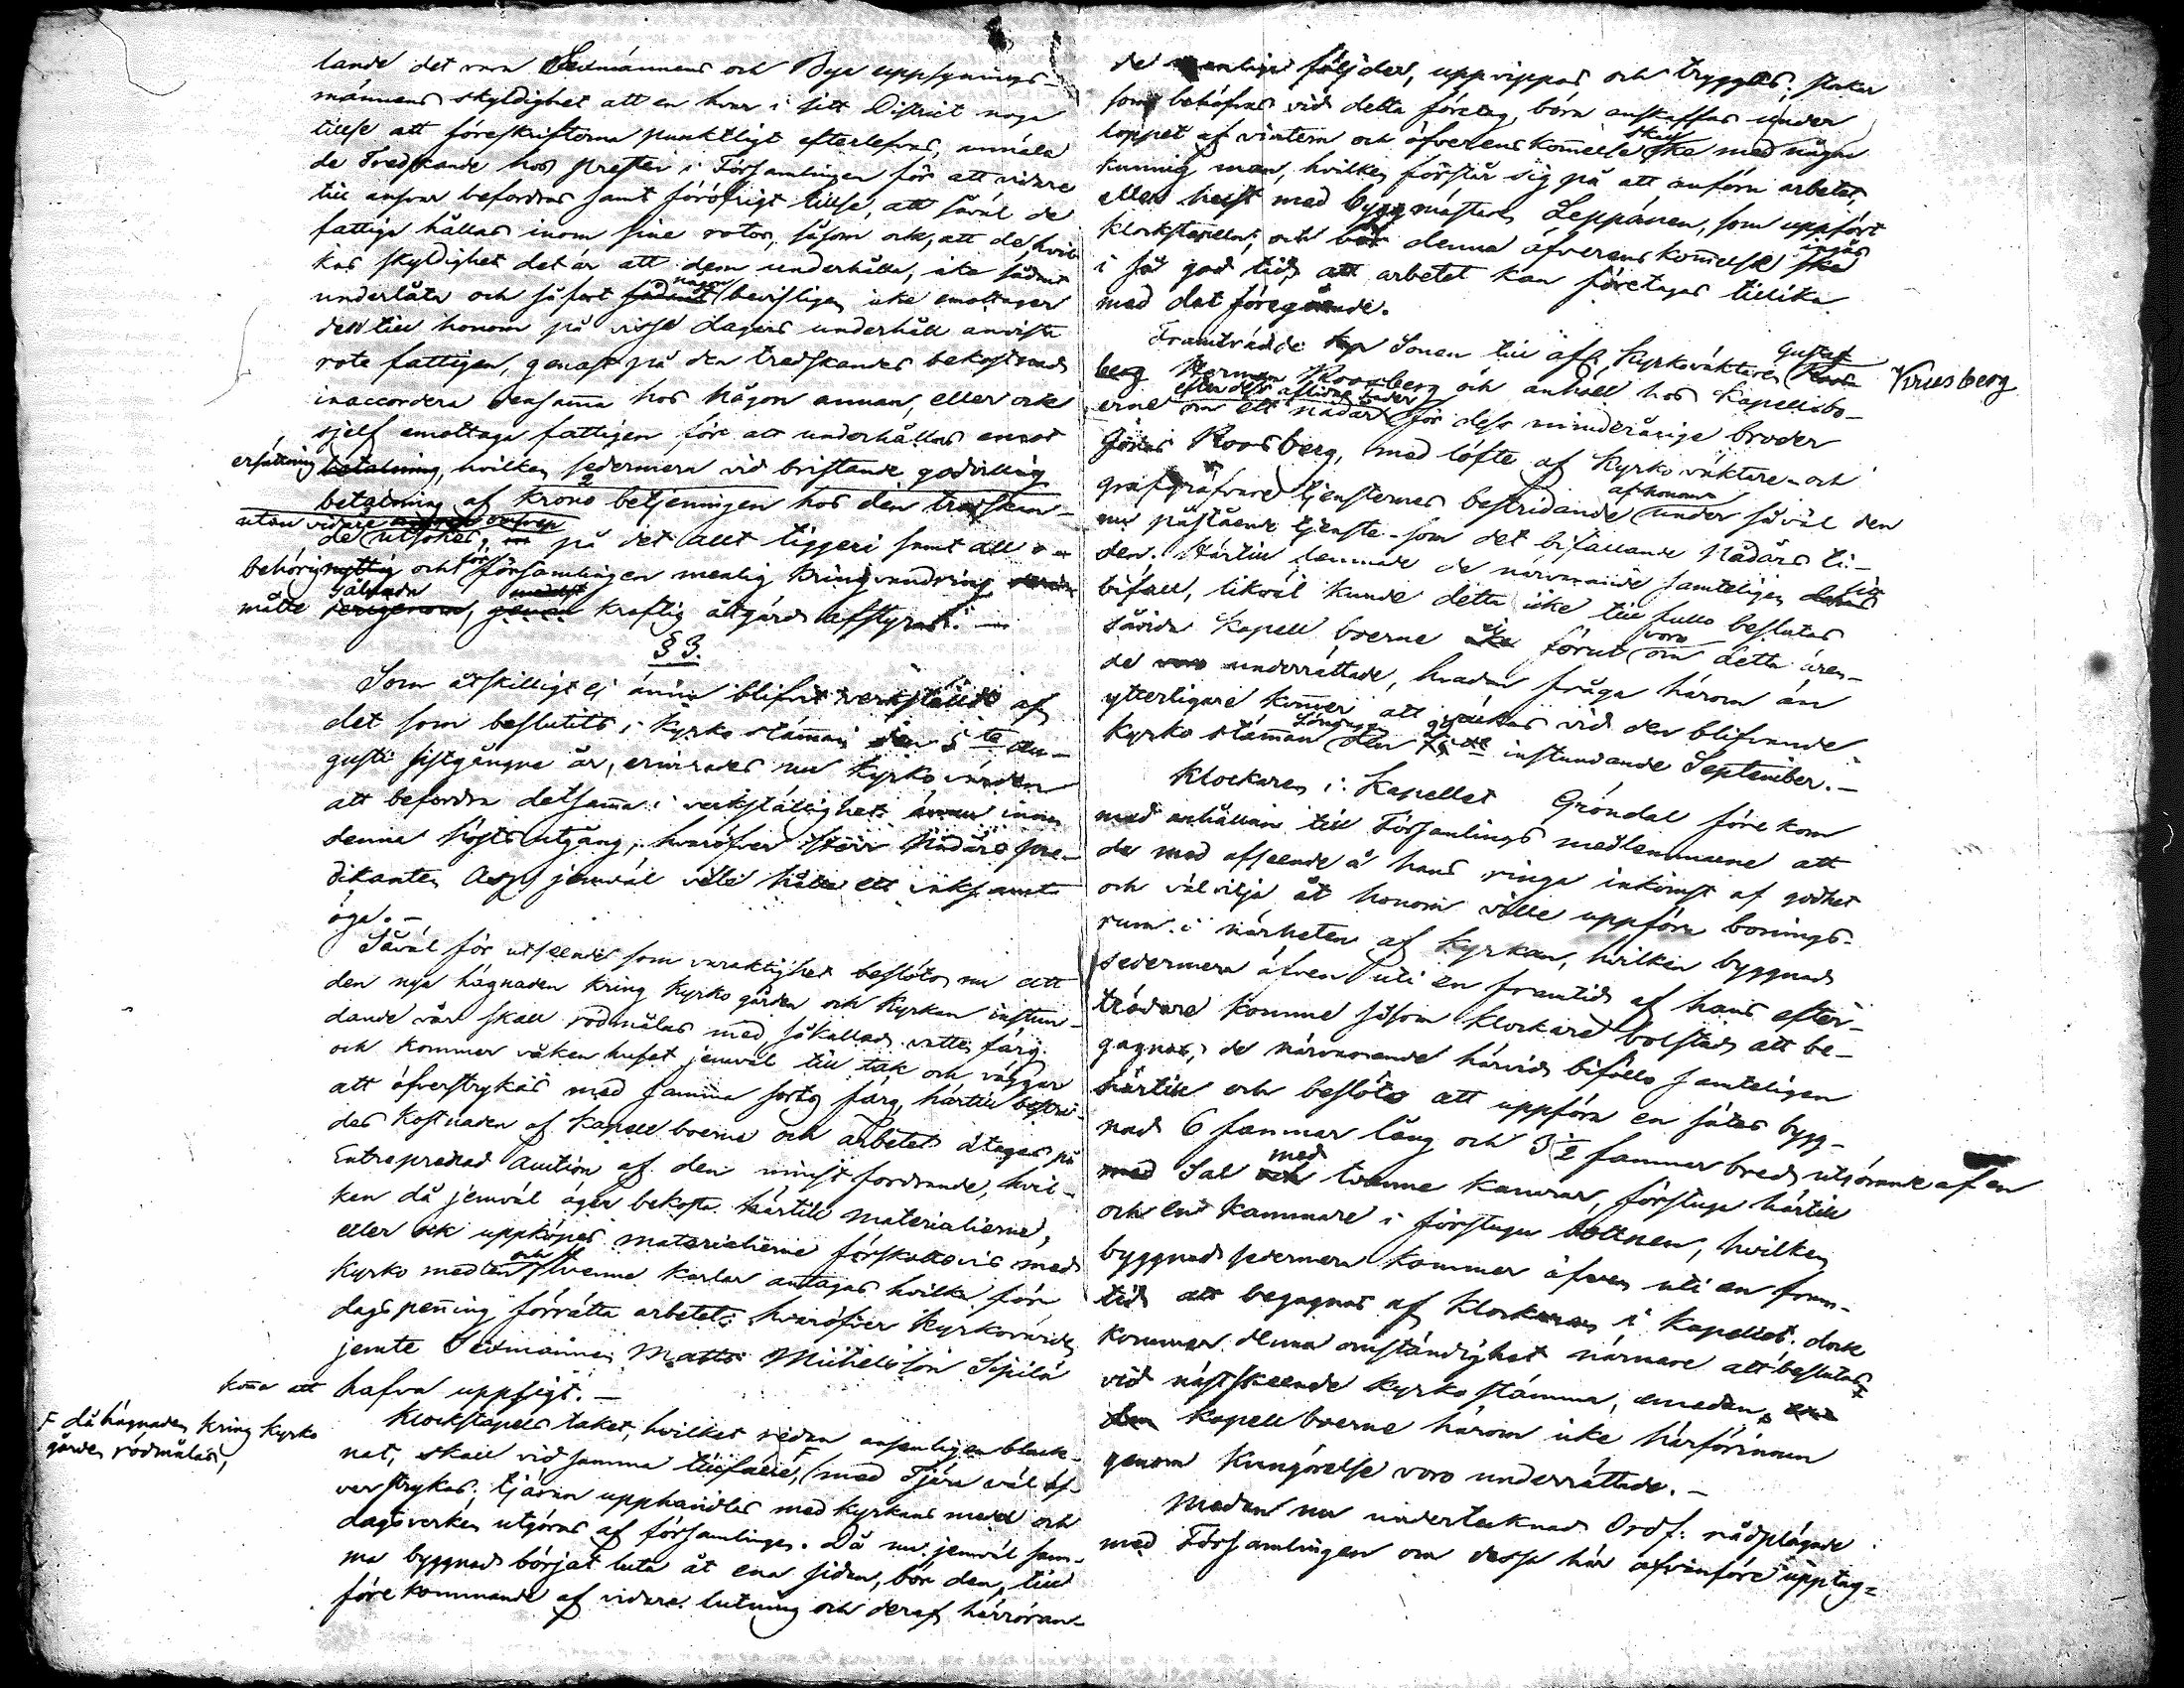 lande det vara Sexmännens och Bye uppsynings-
männens skyldighet att en hvar i sitt District noga
tillse att föreskrifterna punktligt efterlefvas, anmäla
de Tredskande hos Presten i Församlingen för att vidare
till ansvar befordras samt föröfrigt tillse, att såväl de
fattige hållas inom sine rotor, såsom ock, att de, hvil-
kas skyldighet det är att dem underhålla, icke sådant
underlåta och såfort någon bevisligen icke emottager
den till honom på visse dagars underhåll anviste
rote fattigen, genast på den tredskandes bekostnad
inaccordera densamma hos någon annan, eller ock
sjelf emottaga fattigen för att underhållas emot
ersättning betalning, hvilken sedermera vid bristande godvillig
betalning af Krono betjeningen hos den tredskan-
utan vidare
de utsökes, på det allt tiggeri samt all o-
behörig nyttig och för församlingen menlig kringvandring
måtte derigenom, genom kraftig åtgärd afstyras. —
§ 3.
Som åtskilligt ej ännu blifvit verkstäldt af
det som beslutits i Kyrko stämman den 5te Au-
gusti sistgångne år, erinrades nu Kyrkovärden
att befordra detsamma i verkställighet innan
denna hösts utgång, hvaröfver Herr Nådårs Pre-
dikanten Asp jemväl ville hålla ett vaksamt
öga. —
Såväl för utseende som varaktighet beslöts nu att
den nya hägnaden kring Kyrko gården och Kyrkan instun-
dande vår skall rödmålas med såkallad vatten färg
och kommer väkenhuset jemväl till tak och väggar
att öfverstrykas med samma sorts färg, härtill bestri-
des kostnaden af Kapellboerne och arbetet åtages på
Entreprenad Auction af den minst fordrande, hvil-
ken då jemväl äger bekosta härtill materialierne,
eller ock uppköpes materialierne förskottsvis med
Kyrko medlen och tvenne karlar antagas hvilka för
dagspenning förrätta arbetet, hvaröfver Kyrkovärden
jemte Sexmannen Matts Michelsson Sipilä
koma att hafva uppsigt. —
Klockstapels taket, hvilket redan ansenligen blek-
F då hägnaden kring Kyrko
gården rödmålas,
nat, skall vid samma tillfälle, F med Tjära väl öf-
verstrykas; tjäran upphandlas med kyrkans medel och
dagsverken utgöras af församlingen. Då nu jemväl sam-
ma byggnad börjat luta åt ena sidan, bör den, till
förekommande af vidare lutning och deraf härröran-
de menliga följder, uppvippas och tryggas; stockar
som behöfvas vid detta företag, böra anskaffas under
loppet af vintern och öfverenskommelse ske med någon
kunnig man, hvilken förstår sig på att anföra arbetet,
eller helst med byggmästaren Leppänen, som uppfört
klockstapeln; och bör denna öfverenskommelse ingås ske
i så god tid, att arbetet kan företagas tillika
med det föregående.
Framträdde Sonen till afl. Kyrkoväktaren Gustaf Kriusberg
berg Herman Roosberg och anhöll hos Kapellbo-
efter dess aflidne fader
erne om ett nådår för dess minderårige broder
Jonas Roosberg, med löfte af Kyrkoväktare- och
grafgräfvare tjensternes bestridande af honom under såväl den
nu påstående tjenste- som det bifallande Nådårs ti-
den. Härtill lemnade de närvarande samteligen sitt
bifall, likväl kunde detta icke till fullo beslutas
såvida Kapell boerne ej förut voro om detta ären-
de voro underrättade, hvadan fråga härom än
ytterligare kommer att väckas vid den blifvande
Kyrko stämman Söndagen den instundande September. —
Klockaren i Kapellet Gröndal förekom
med anhållan till Församlings medlemmarne att
de med afseende å hans ringa inkomst af godhet
och välvilja åt honom ville uppföra bonings-
rum i närheten af Kyrkan, hvilken byggnad
sedermera äfven uti en framtid af hans efter-
trädare komme såsom Klockare bolstad att be-
gagnas, de närvarande härvid biföllo samteligen
härtill och beslöts att uppföra en sådan bygg-
nad 6 famnar lång och 3½ famnar bred, utgörande af en
med Sal med tvenne kamrar, förstuga härtill
och en kammare i förstugu bottnen, hvilken
byggnad sedermera kommer äfven uti en fram-
tid att begagnas af Klockaren i Kapellet. dock
kommer denna omständighet närmare att beslutas
vid nästskeende Kyrko stämma, emedan
Kapell boerne härom icke härförinnan
genom Kungörelse voro underrättade. —
Medan nu undertecknad Ordf: rådplägade
med Församlingen om dessa här ofvanföre upptag-